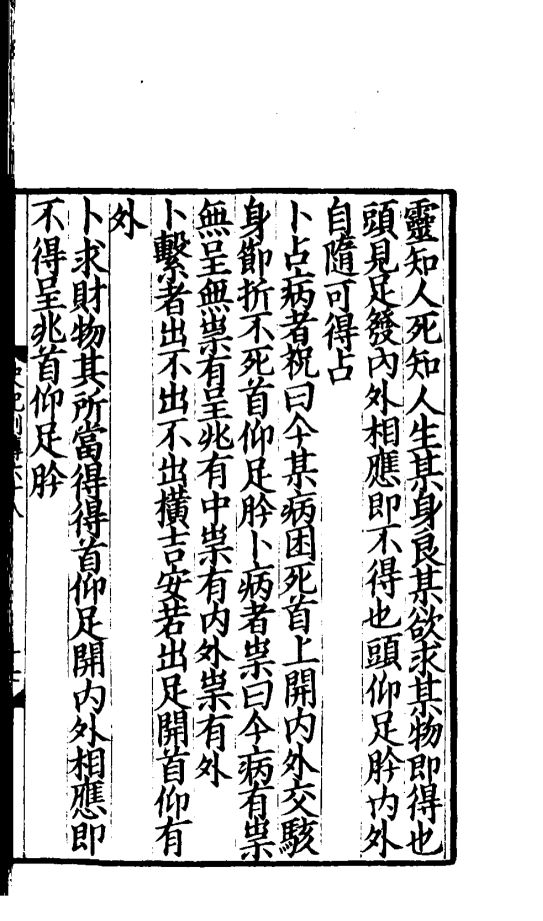 靈知人死知人生某身良某欲求某物即得也
頭見足發內外相應即不得也頭仰足肣內外
自隨可得占
卜占病者祝曰今某病困死首上開內外交駭
身節折不死首仰足肣卜病者祟曰今病有祟
無呈無祟有呈兆有中祟有內外祟有外
卜繫者出不出不出橫吉安若出足開首仰有
外
卜求財物其所當得得首仰足開內外相應即
不得呈兆首仰足肣
史記列傳六十八